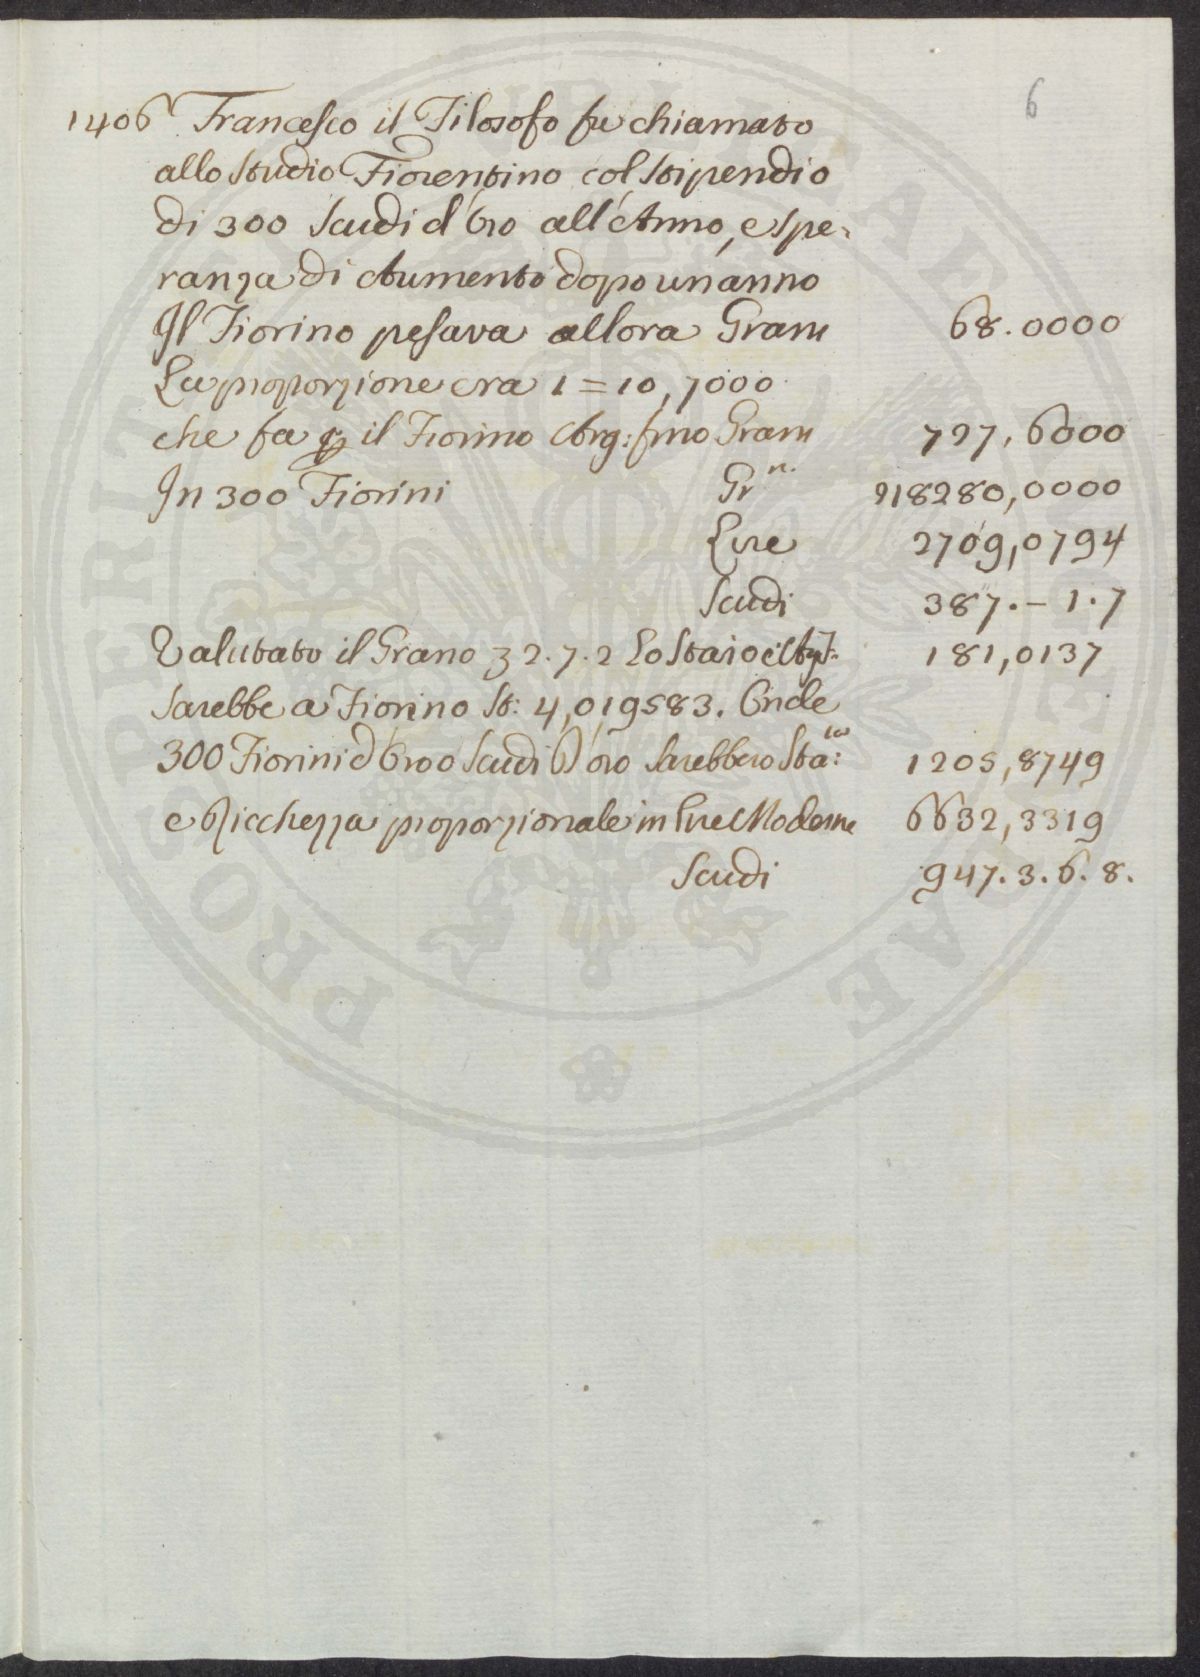 6
1406 Francesco il Filosofo fu chiamato
allo Studio Fiorentino col Stipendio
di 300 Scudi d'Oro all'Anno, e spe-
ranza di Aumento dopo un anno
Il Fiorino pesava allora Grani 68.0000
La proporzione era 1 = 10,7000
che fa il Fiorino Arg: fino Grani 727,6000
In 300 Fiorini Gr.n 218280,0000
Lire 2709,0794
Scudi 387.- 1.7
Valutato il Grano 2.7.2 Lo Staio 181,0137
Sarebbe a Fiorino St: 4,019583. Onde
300 Fiorini d'Oro o Scudi d'oro Sarebbero Sta: 1205,8749
e Ricchezza proporzionale in Lire Moderne 6632,3319
Scudi 947.3.6.8.
PROSPERITATI PUBLICAE